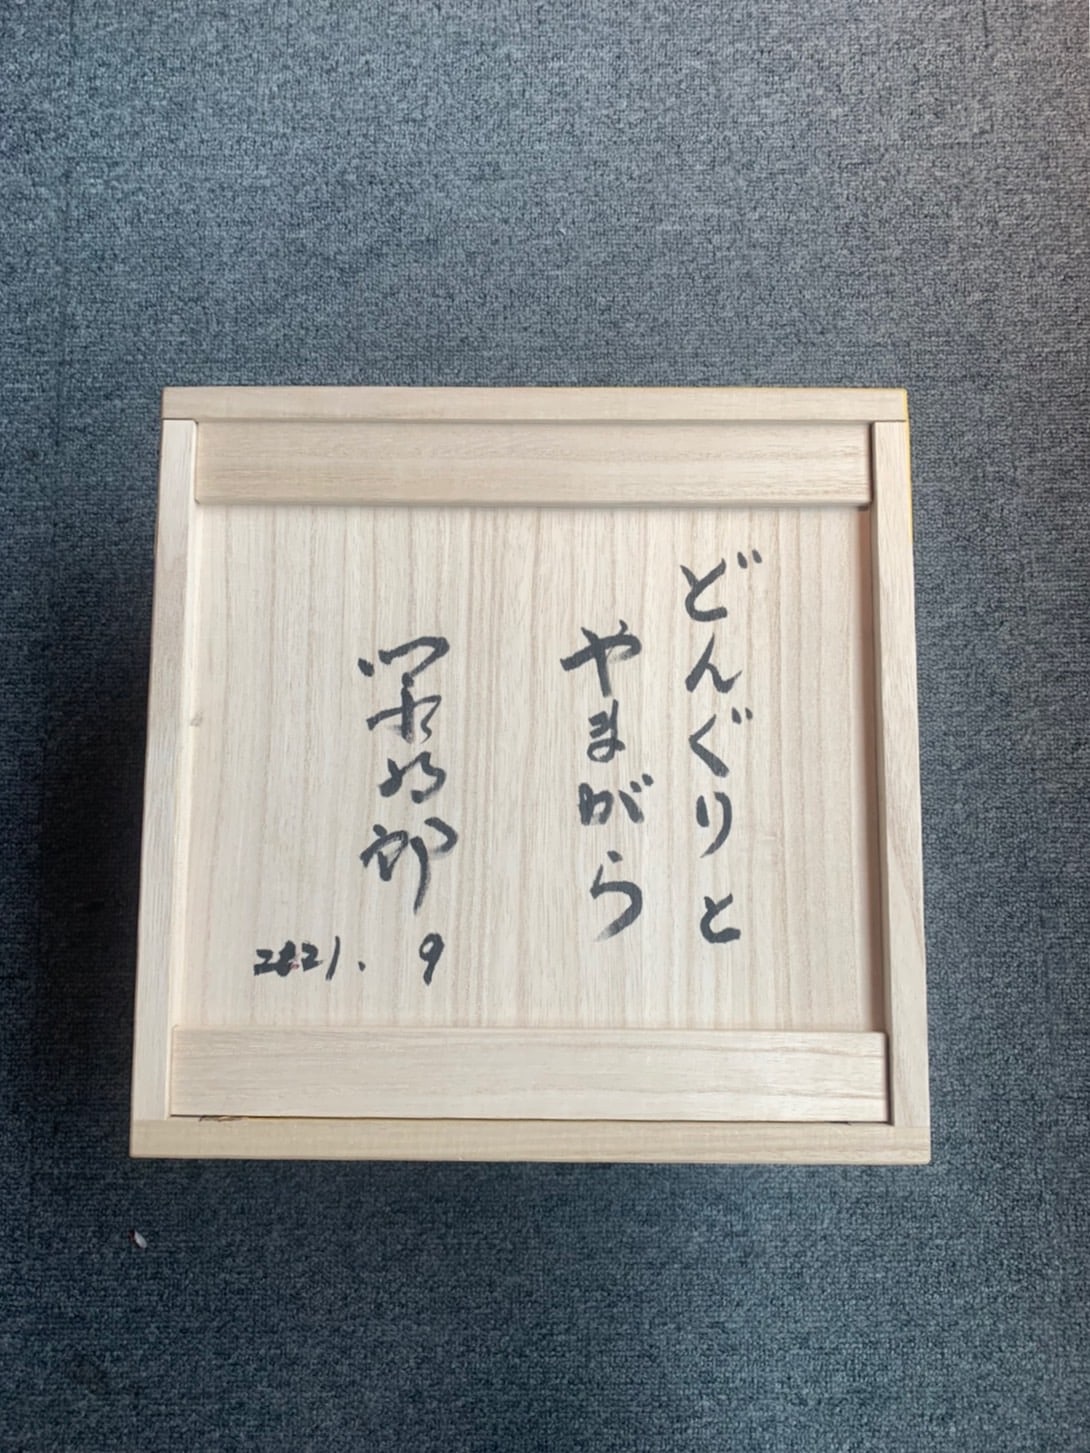 どんぐりと
やまがら
2021. 9